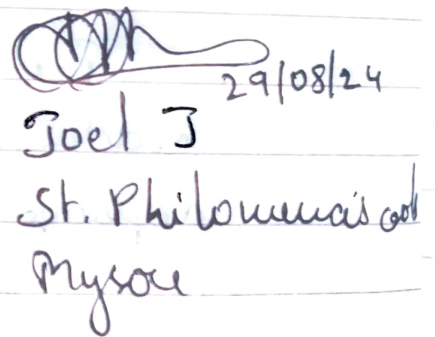 29/08/24
Joel J
St. Philomena's
Mysore